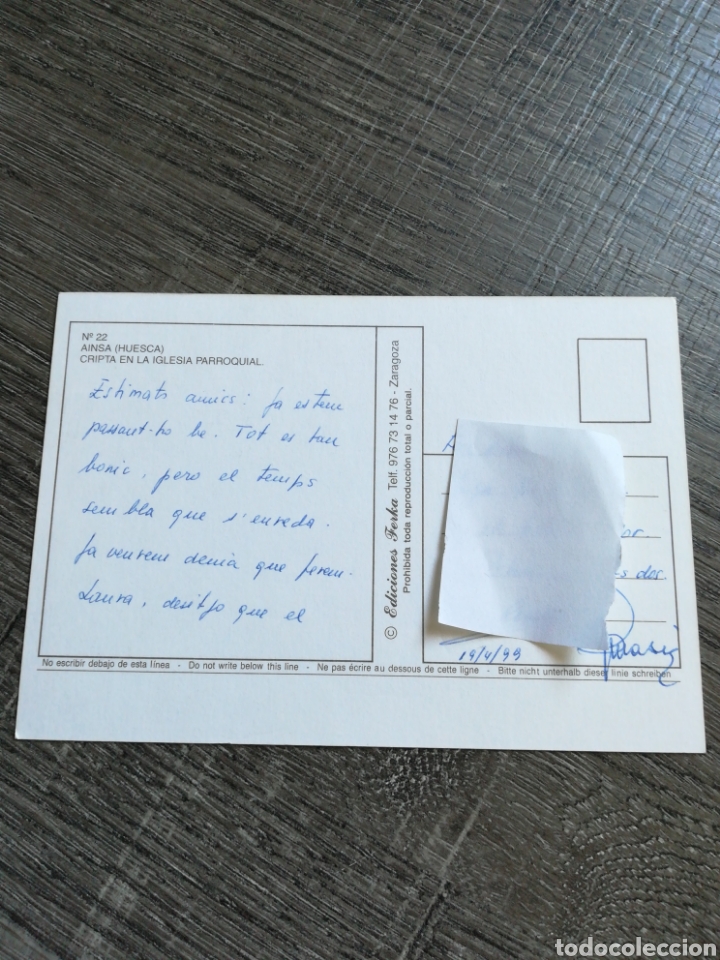 Nº 22
AINSA (HUESCA)
CRIPTA EN LA IGLESIA PARROQUIAL.
Estimats amics: Ja estem
passant-ho be. Tot es tan
bonic, pero el temps
sembla que s'enreda.
Ja veurem demà que ferem.
Laura, desitjo que el
© Ediciones Ferka Telf. 976 73 14 76 - Zaragoza
Prohibida toda reproducción total o parcial.
A
or.
s des.
19/4/99
No escribir debajo de esta línea - Do not write below this line - Ne pas écrire au dessous de cette ligne - Bitte nicht unterhalb dieser linie schreiben
todocoleccion